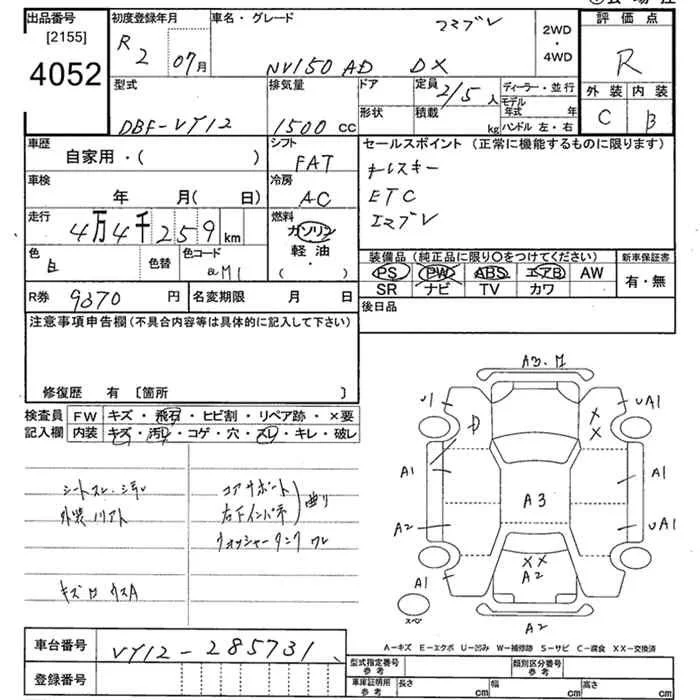 出品番号
[2155]
4052
初度登録年月
R2 07月
車名・グレード
エマブレ
NV150 AD DX
2WD
・
4WD
評価点
R
外装 内装
C B
型式
DBF-VY12
排気量
1500cc
ドア
形状
定員
2/5人
積載
kg
ディーラー・並行
モデル年式 年
ハンドル 左・右
車歴
自家用・( )
シフト
FAT
セールスポイント (正常に機能するものに限ります)
キーレスキー
ETC
エマブレ
車検
年 月(日)
冷房
AC
走行
4万4千259km
燃料
ガソリン
軽油
・( )
色
白
色替
色コード
QM1
装備品 (純正品に限り〇をつけてください)
PS PW ABS エアB AW
SR ナビ TV カワ
新車保証書
有・無
R券
9870円
名変期限 月 日
後日品
注意事項申告欄(不具合内容等は具体的に記入して下さい)
修復歴 有 〔箇所 〕
検査員記入欄
FW キズ・飛石・ヒビ割・リペア跡・×要
内装 キズ・汚レ・コゲ・穴・スレ・キレ・破レ
シートスレ・シミ
コアサポート
右下インパネ
曲り
ウォッシャータンク ワレ
A3.M
U1
UA1
D
XX
A1
A1
A3
A2
UA1
A1
XX
A2
A1
スペア
A2
A-キズ E-エクボ U-凹み W-補修跡 S-サビ C-腐食 XX-交換済
車台番号
VY12-285731
登録番号
型式指定番号
参考
類別区分番号
参考
車庫証明用
参考
長さ cm
幅 cm
高さ cm